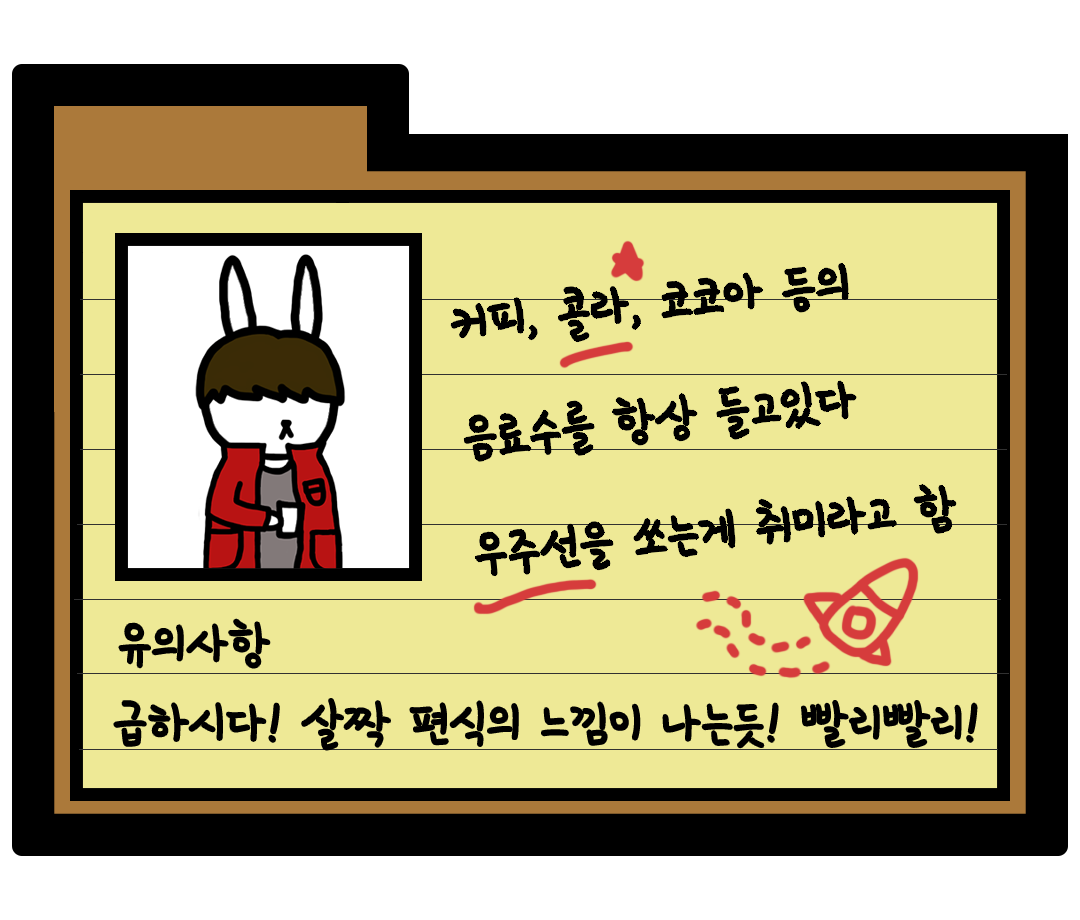 커피, 콜라, 코코아 등의
음료수를 항상 들고있다
우주선을 쏘는게 취미라고 함
유의사항
급하시다! 살짝 편식의 느낌이 나는듯! 빨리빨리!